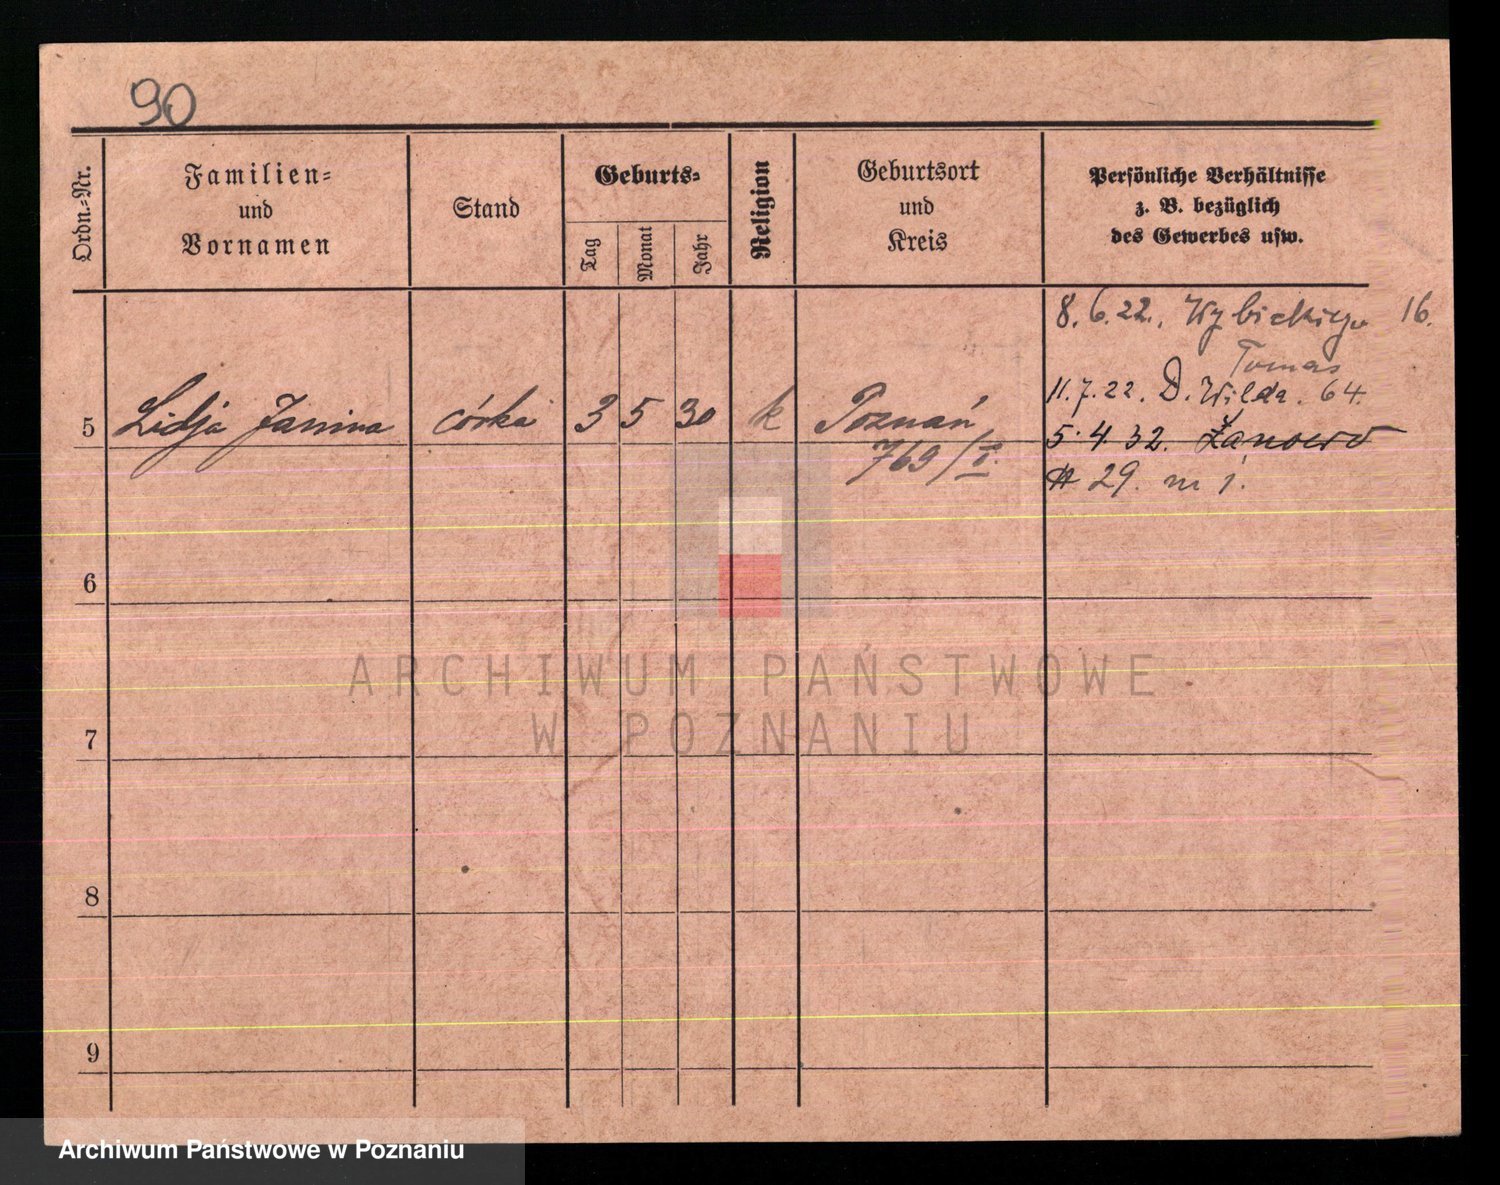 90
Ordn.-Nr.
Familien-
und
Vornamen
Stand
Geburts-
Tag
Monat
Jahr
Religion
Geburtsort
und
Kreis
Persönliche Verhältnisse
z. B. bezüglich
des Gewerbes usw.
8. 6. 22. Wybickiego 16.
Tomas
11. 7. 22. D. Wilda. 64.
5 Lidja Janina córka 3 5 30 k Poznań
769/I.
5. 4. 32. Żanowo
29. m 1.
6
7
8
9
ARCHIWUM PAŃSTWOWE
W POZNANIU
Archiwum Państwowe w Poznaniu